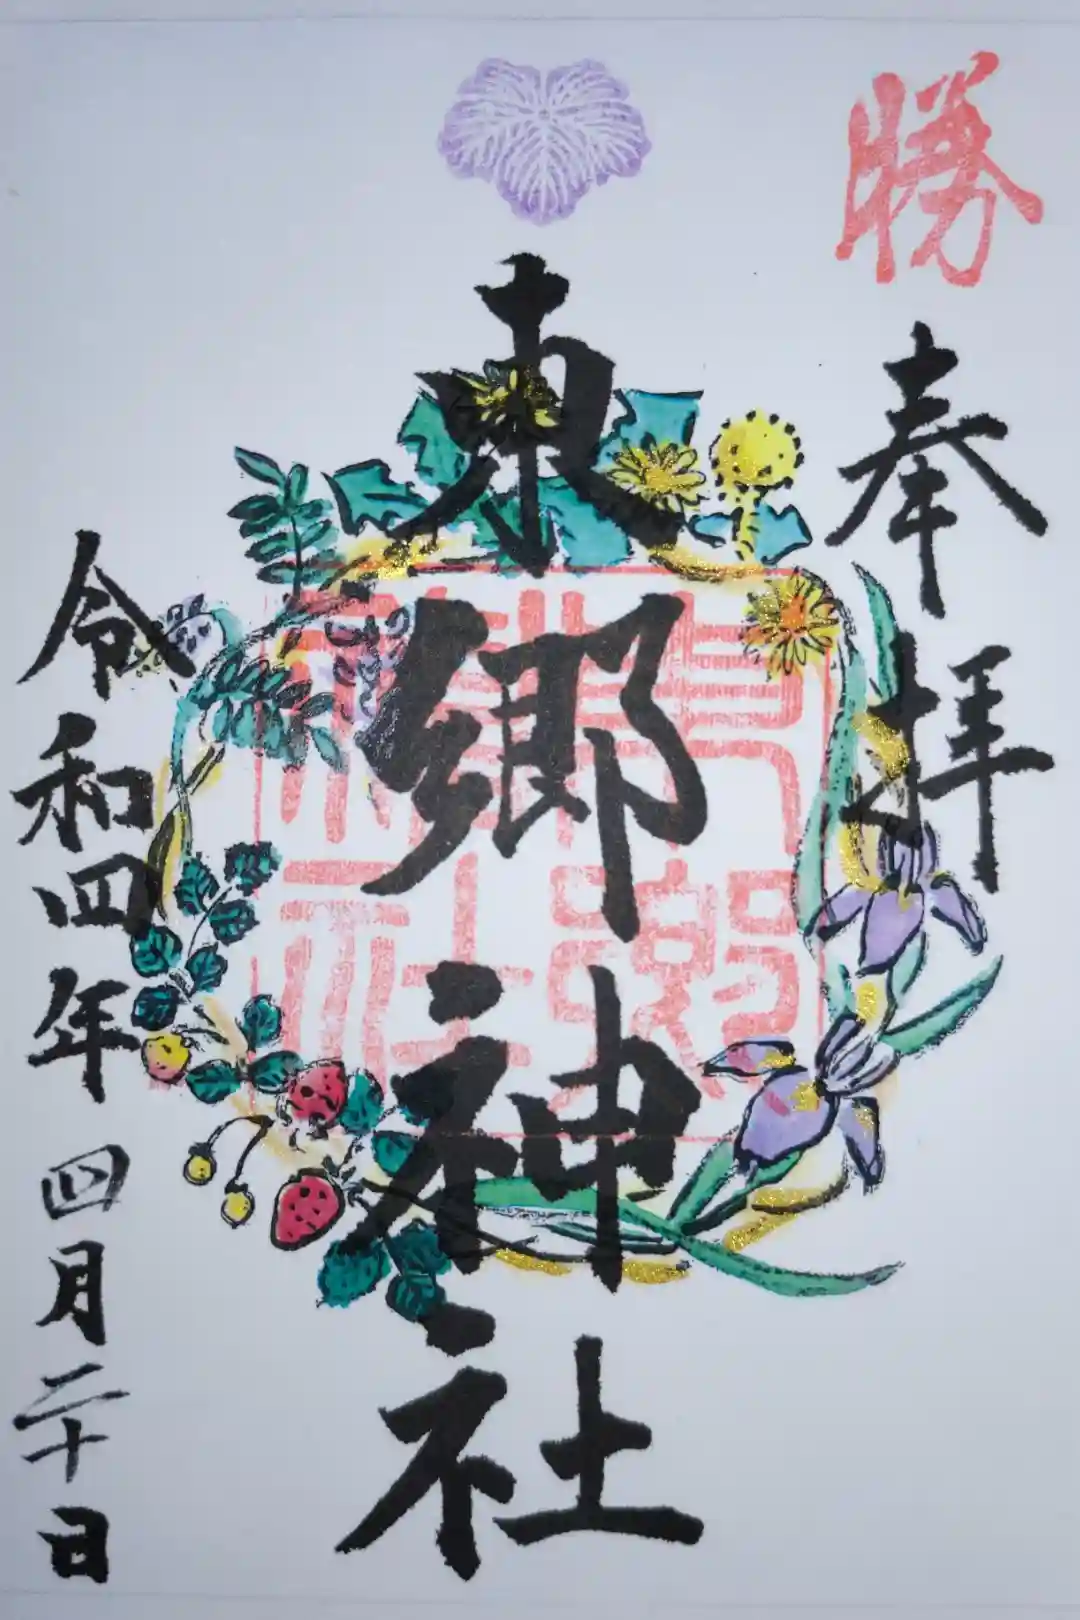 勝
奉拝
東郷神社
東郷神社
令和四年四月二十日